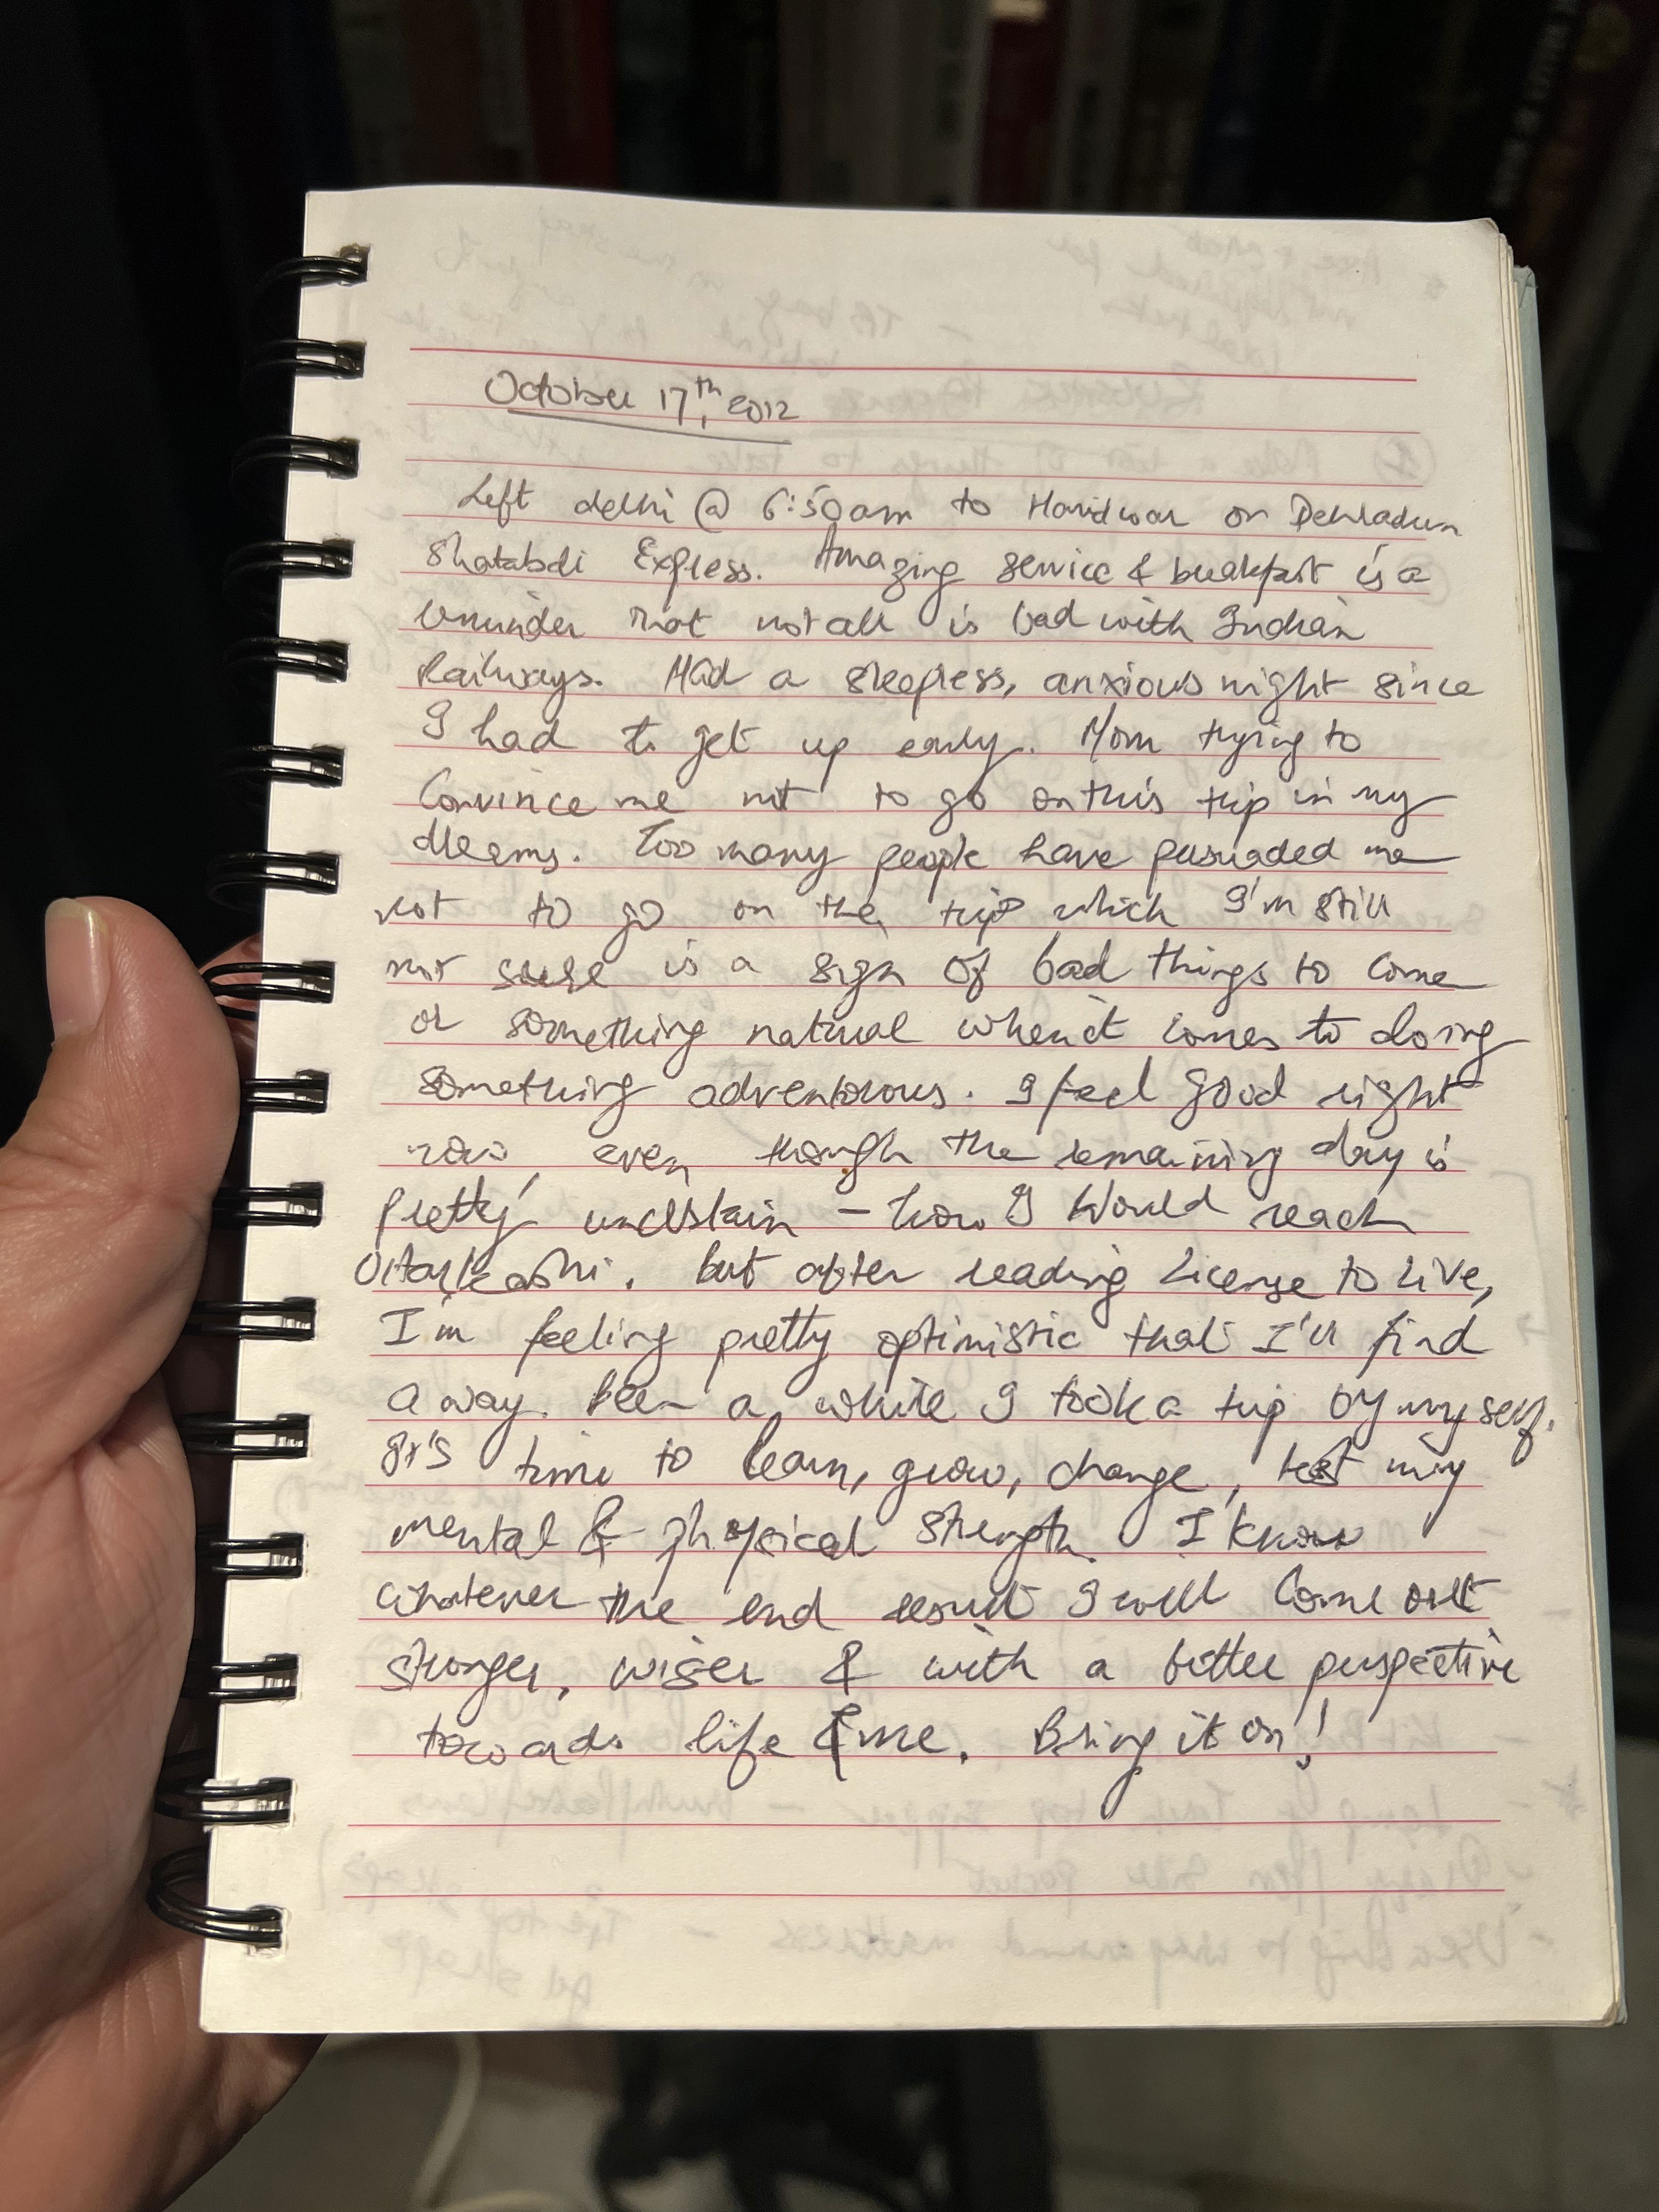 October 17th, 2012
Left delhi @ 6:50am to Haridwar on Dehradun
Shatabdi Express. Amazing service & breakfast is a
reminder that not all is bad with Indian
Railways. Had a sleepless, anxious night since
I had to get up early. Mom trying to
Convince me not to go on this trip in my
dreams. Too many people have persuaded me
not to go on the trip which I'm still
not sure is a sign of bad things to come
or something natural when it comes to doing
something adventorous. I feel good right
now, even though the remaining day is
pretty uncertain – how I would reach
Uttarkashi. But after reading License to Live,
I'm feeling pretty optimistic that I'll find
a way. Been a while I took a trip by myself.
It's time to learn, grow, change, test my
mental & physical strength. I know
whatever the end result I will come out
stronger, wiser & with a better perspective
towards life & me. Bring it on!